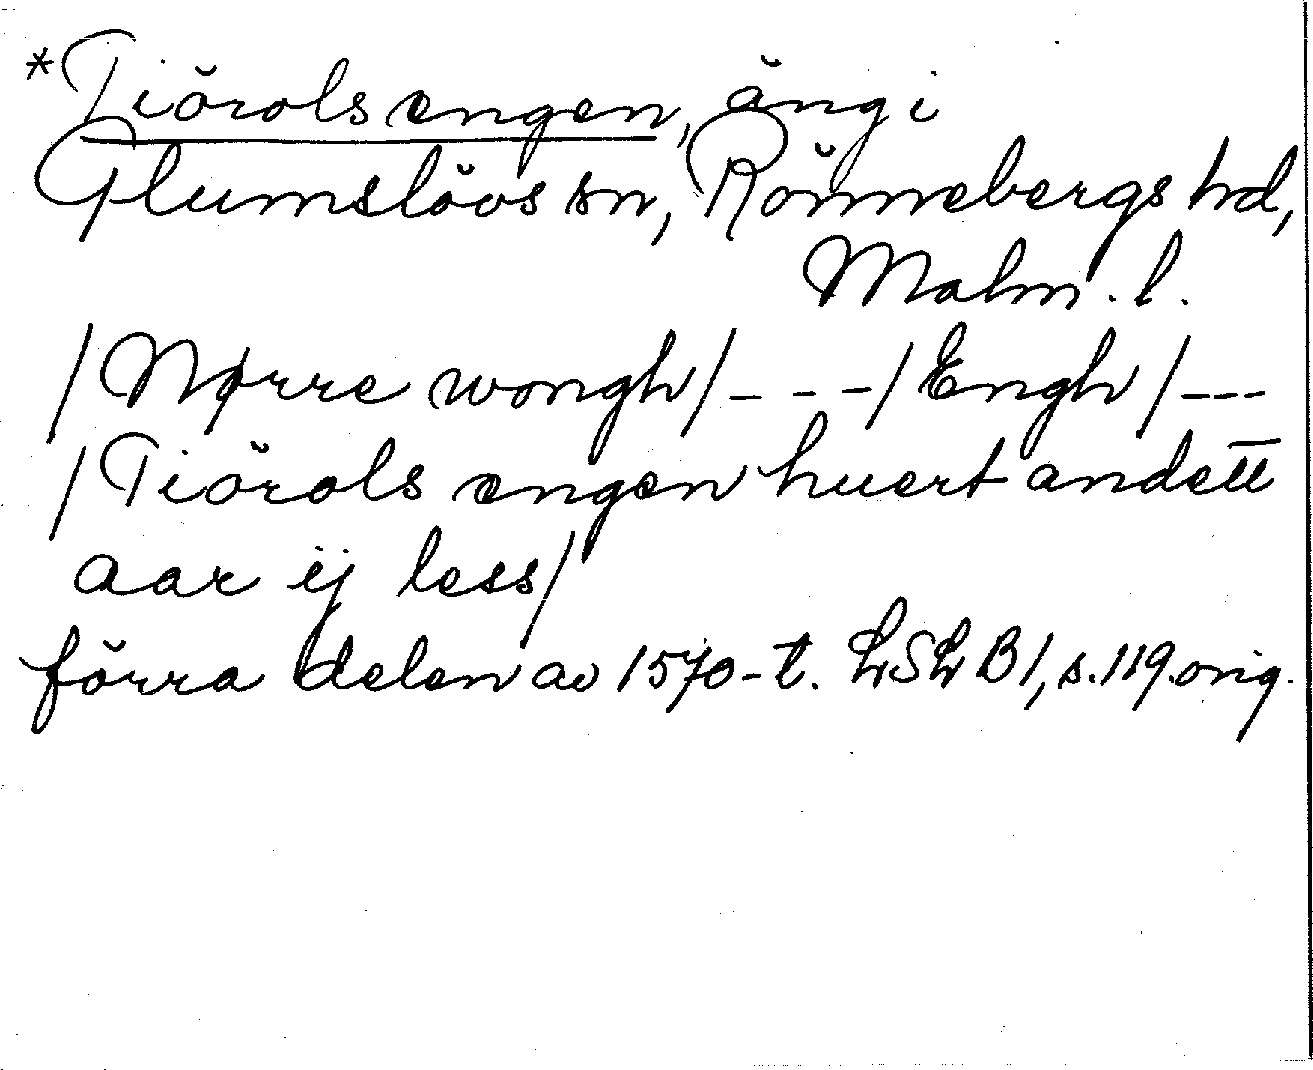 *Tiörols engen, äng i
Glumslövs sn, Rönnebergs hd,
Malm. l.
/Nørre wongh/---/Engh/---
/Tiörols engen huert andett
aar ij less/
förra delen av 1570-t. LSL B1, s.119.orig.